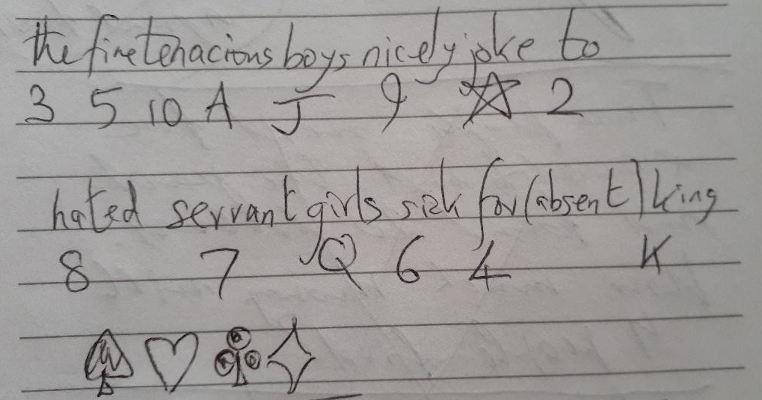 the fine tenacious boys nicely joke to
3 5 10 A J 9 ☆ 2
hated servant girls sick for (absent) king
8 7 Q 6 4 K
♠ ♡ ♣ ♢